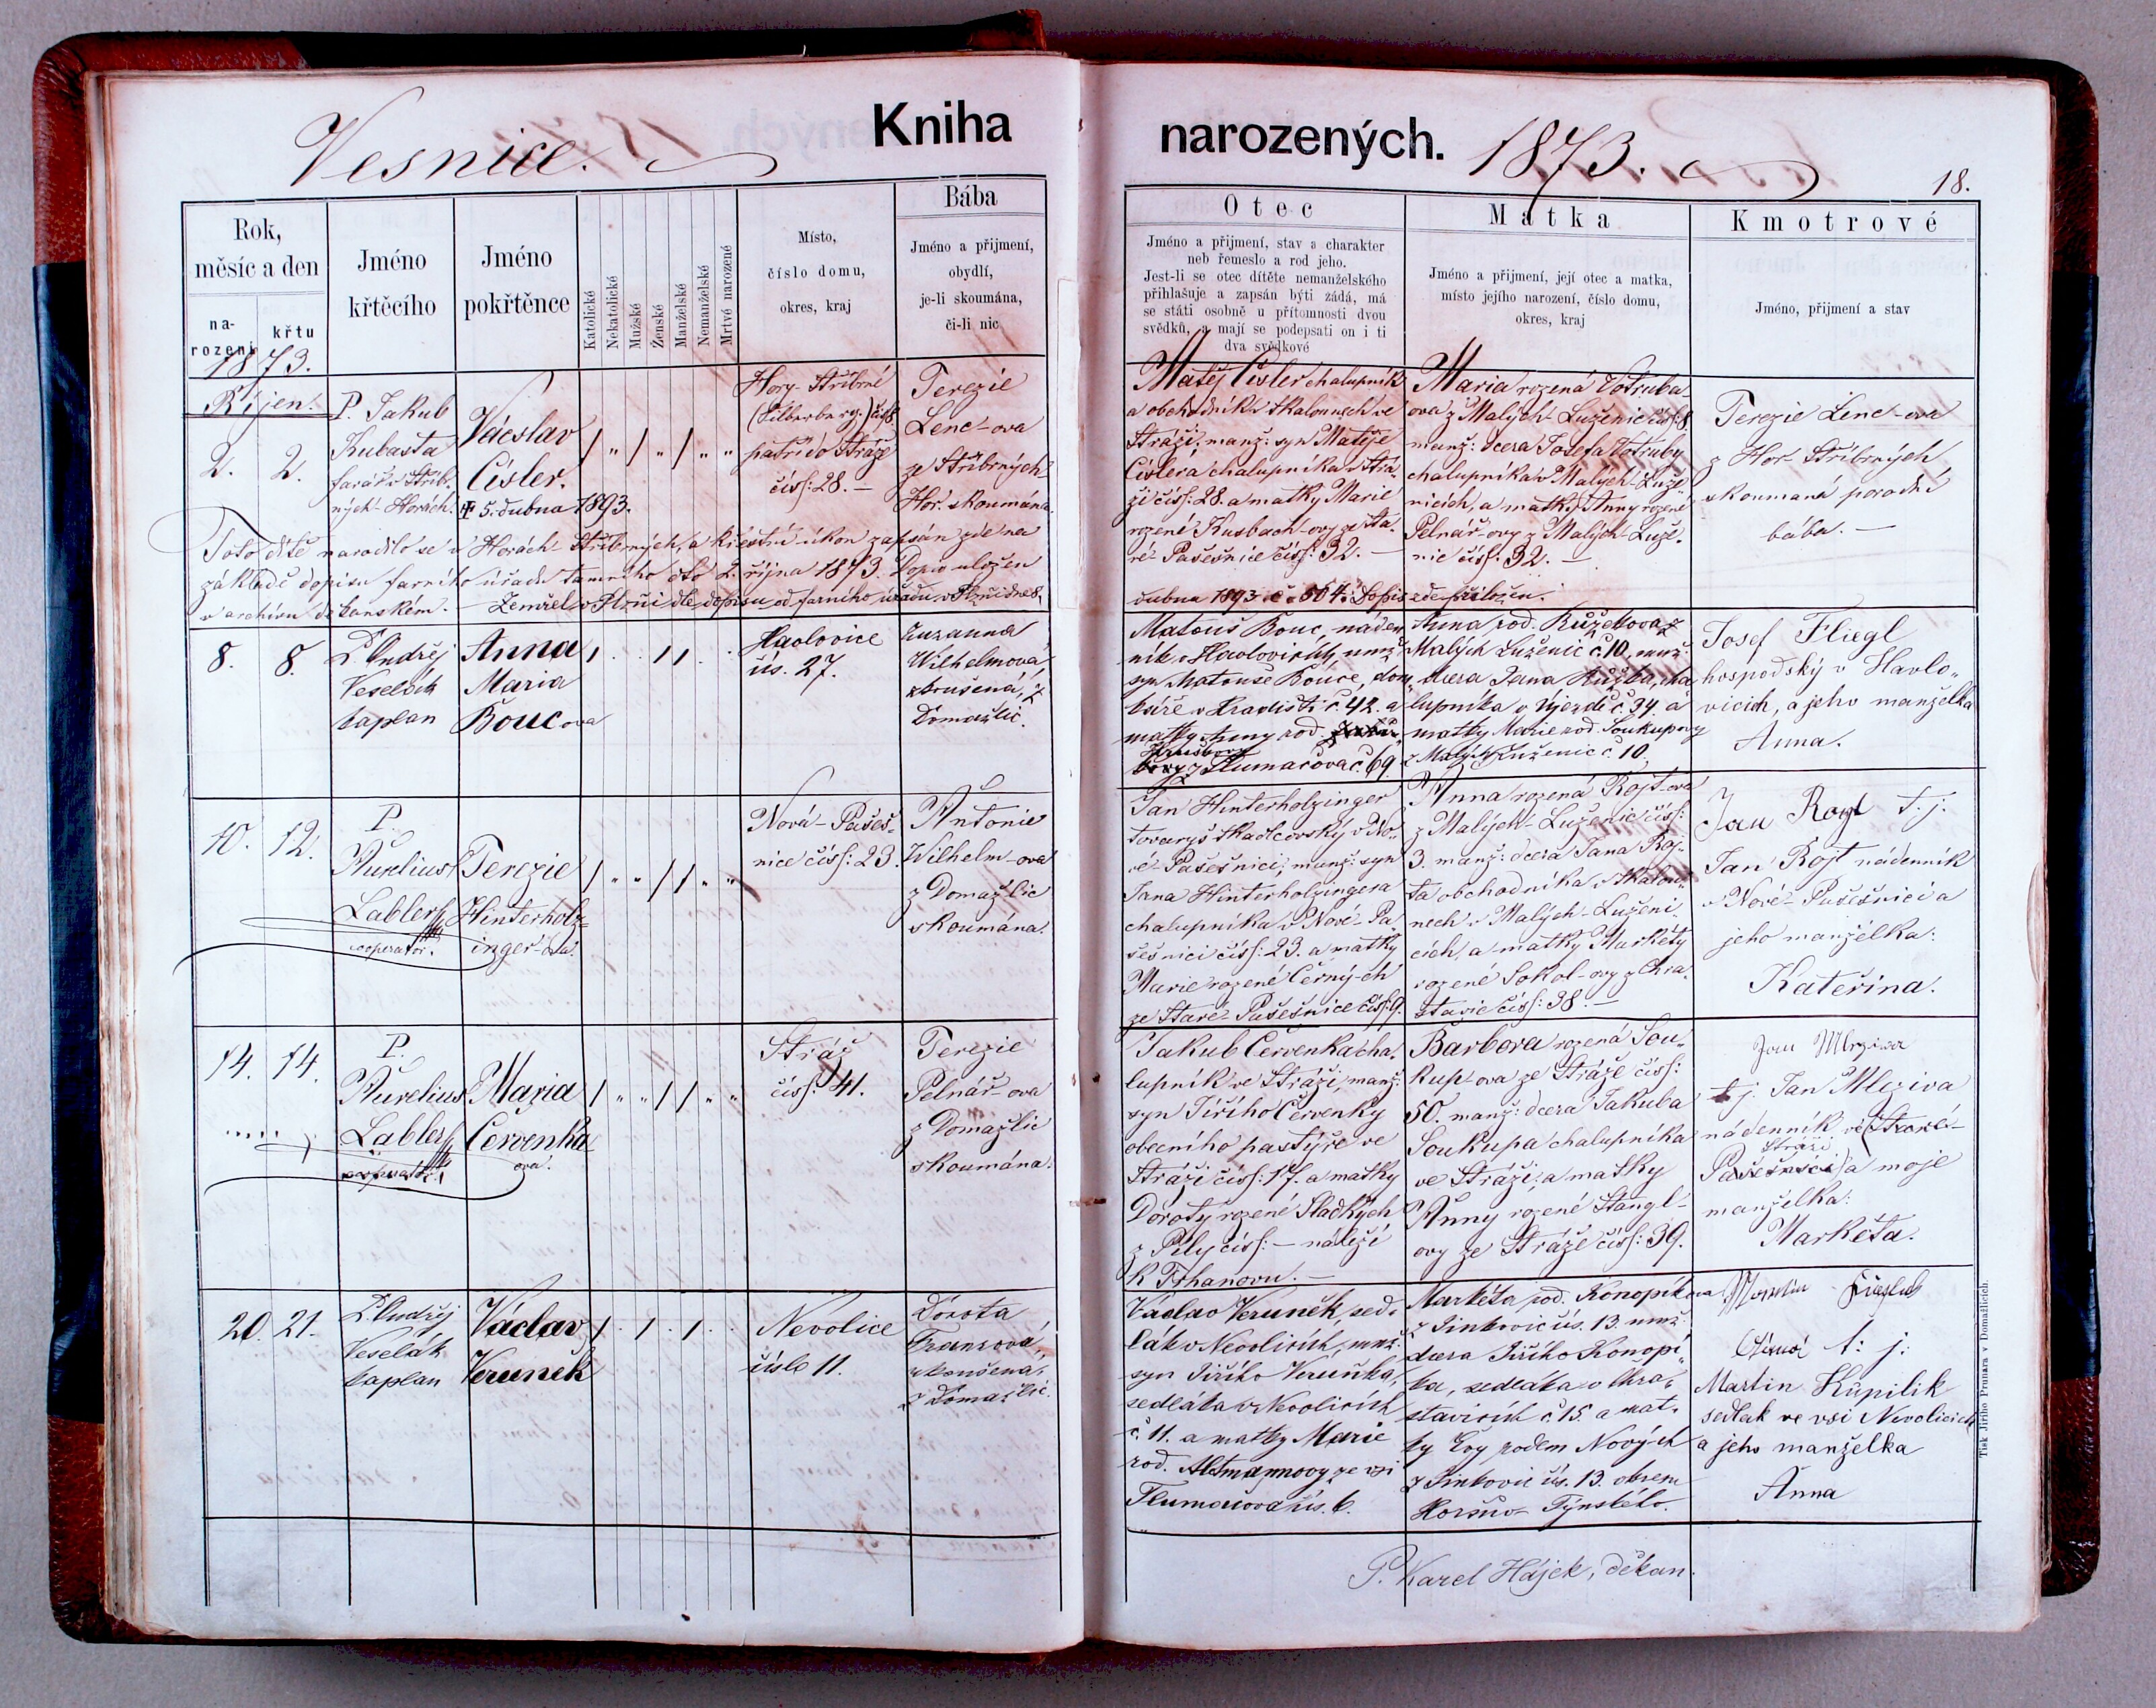 Vesnice.
Kniha
narozených. 1873.
18.
Rok,
měsíc a den
na-
rození
křtu
Jméno
křtěcího
Jméno
pokřtěnce
Katolické
Nekatolické
Mužské
Ženské
Manželské
Nemanželské
Mrtvé narozené
Místo,
číslo domu,
okres, kraj
Bába
Jméno a přijmení,
obydlí,
je-li skoumána,
či-li nic
Otec
Jméno a přijmení, stav a charakter
neb řemeslo a rod jeho.
Jest-li se otec dítěte nemanželského
přihlašuje a zapsán býti žádá, má
se státi osobně u přítomnosti dvou
svědků, a mají se podepsati on i ti
dva svědkové
Matka
Jméno a přijmení, její otec a matka,
místo jejího narození, číslo domu,
okres, kraj
Kmotrové
Jméno, přijmení a stav
1873.
Říjen.
2. 2.
P. Jakub
Kubasta
farář v Stříb-
ných Horách.
Václav
Císler.
✝ 5. dubna 1893.
Hory Stříbrné
(Silberberg.) čís. 8
patří do Stráže
čísl: 28. —
Terezie
Lenc-ova
ze Stříbrných
Hor. skoumána.
Matěj Císler chalupník
a obchodník v tkalounech ve
Stráži, manž: syn Matěje
Císlera chalupníka v Strá-
ži čísl: 28. a matky Marie
rozené Kusbach-ovy ze Sta-
ré Pašešnice čísl: 32. —
Maria rozená Votruba-
ova z Malých Luženic čísl: 8.
manž: dcera Josefa Votruby
chalupníka v Malých Luže-
nicích, a matky Anny rozené
Pelnář-ovy z Malých Luže-
nic čísl: 32. —
Terezie Lenc-ova
z Hor Stříbrných
skoumaná porodní
bába. —
Toto dítě narodilo se v Horách Stříbrných, a křestní úkon zapsán zde na
základě dopisu farního úřadu tamního dto 2. října 1873. Dopis uložen
v archivu děkanském. — Zemřel v Plzni dle dopisu od farního úřadu v Plzni dne 8.
dubna 1893 č. 504. Dopis zde přiložen.
8. 8.
P. Ondřej
Veselák
kaplan
Anna
Maria
Boucova
Havlovice
čís. 27.
Zuzanna
Wilhelmová,
zkoušená, z
Domažlic.
Matouš Bouc, náden-
ník v Havlovicích, manž.
syn Matouše Bouce, dom-
káře v Hradišti č. 42. a
matky Anny rod.
z Tlumačova č. 69.
Anna rod. Růžkova z
Malých Luženic č. 10, manž.
dcera Jana Růžka, cha-
lupníka v Újezdě č. 34. a
matky Marie rod. Soukupovy
z Malých Luženic č. 10.
Josef Fliegl
hospodský v Havlo-
vicích, a jeho manželka
Anna.
10. 12.
P.
Aurelius
Labler
cooperator.
Terezie
Hinterholz-
inger-ova.
Nová-Pašeš-
nice čísl: 23.
Antonie
Wilhelm-ova
z Domažlic
skoumána.
Jan Hinterholzinger
tovaryš tkadlcovský v No-
vé-Pašešnici, manž: syn
Jana Hinterholzingera
chalupníka v Nové-Pa-
šešnici čísl: 23. a matky
Marie rozené Černých
ze Staré-Pašešnice čísl: 9.
Anna rozená Rojt-ova
z Malých-Luženic čísl:
3. manž: dcera Jana Roj-
ta obchodníka v tkaloun-
nech v Malých-Luženi-
cích, a matky Markéty
rozené Sokol-ovy z Chra-
stavic čísl: 38. —
Jan Rojt t. j.
Jan Rojt nádenník
v Nové-Pašešnici a
jeho manželka:
Kateřina.
14. 14.
P.
Aurelius
Labler
cooperator.
Maria
Červenka
ova.
Stráž
čísl: 41.
Terezie
Pelnář-ova
z Domažlic
skoumána.
Jakub Červenka cha-
lupník ve Stráži, manž:
syn Jiřího Červenky
obecního pastýře ve
Stráži čísl: 17. a matky
Doroty rozené Sladkých
z Pily čísl: — náleží
k Trhanovu. —
Barbora rozená Sou-
kup-ova ze Stráže čísl:
50. manž: dcera Jakuba
Soukupa chalupníka
ve Stráži, a matky
Anny rozené Stangl-
ovy ze Stráže čísl: 39.
Jan Mleziva
t. j. Jan Mleziva
nádenník ve (Staré-
Stráži
Pašešnici) a moje
manželka:
Markéta.
20. 21.
P. Ondřej
Veselák
kaplan
Václav
Veruněk
Nevolice
číslo 11.
Dorota
Franzová,
zkoušená,
z Domažlic.
Václav Veruněk, sed-
lák v Nevolicích, manž.
syn Jiřího Veruňka,
sedláka v Nevolicích
č. 11. a matky Marie
rod. Altmannovy ze vsi
Tlumačova čís. 6.
Markéta rod. Konopíkova
z Šinkovic čís. 13. manž.
dcera Jiřího Konopí-
ka, sedláka v Chra-
stavicích č. 15. a mat-
ky Evy rodem Nových
z Šinkovic čís. 13. okresu
Horšovo-Týnského.
Martin
t: j:
Martin Kupilik
sedlak ve vsi Nevolicích
a jeho manželka
Anna
P. Karel Hájek, děkan.
Tisk Jiřího Prunara v Domažlicích.